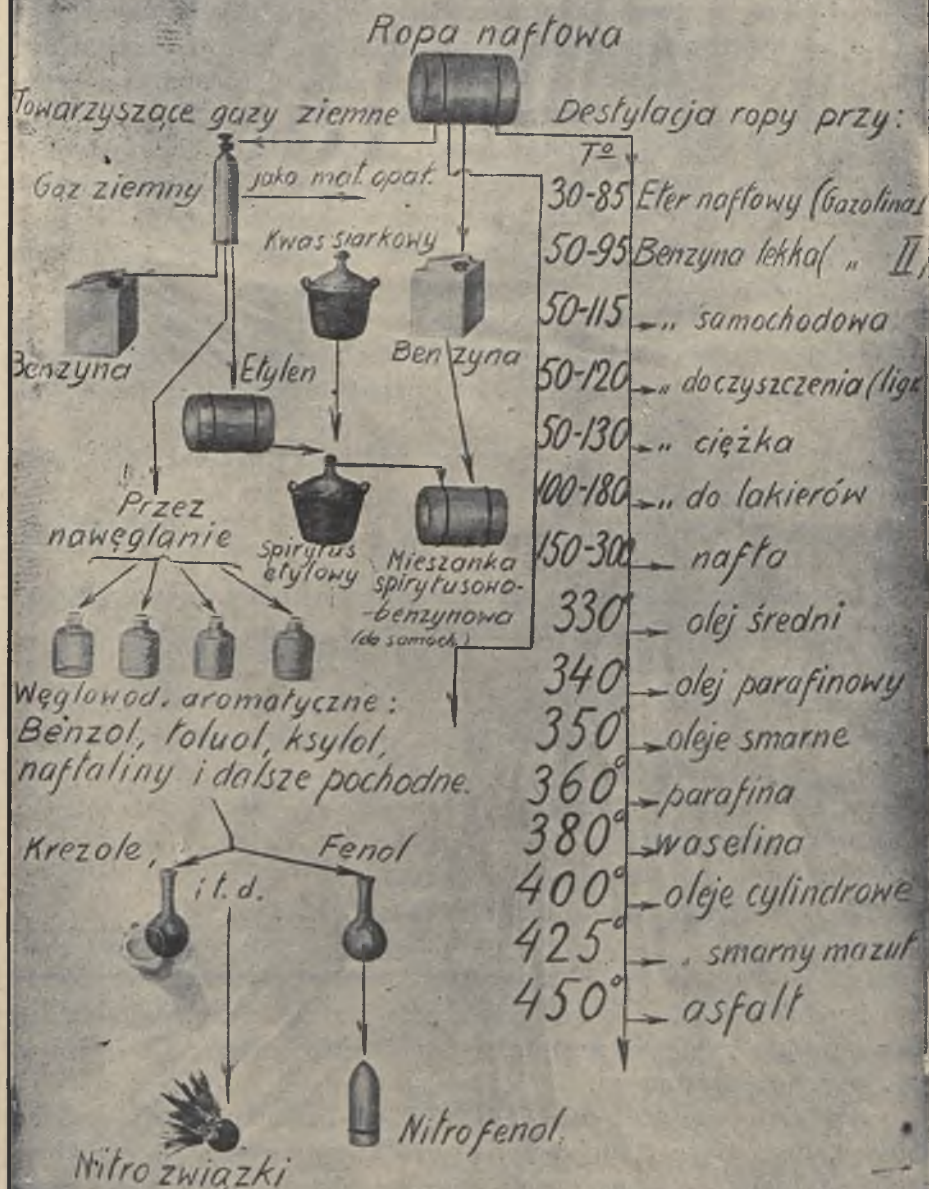 Ropa naftowa
Towarzyszące gazy ziemne
Gaz ziemny
jako mat. opał.
Kwas siarkowy
Benzyna
Etylen
Benzyna
Przez
nawęglanie
Spirytus
etylowy
Mieszanka
spirytusowo-
-benzynowa
(do samoch.)
Węglowod. aromatyczne:
Benzol, toluol, ksylol,
naftaliny i dalsze pochodne.
Krezole,
i t. d.
Fenol
Nitrozwiązki
Nitrofenol.
Destylacja ropy przy:
Tº
30-85 Eter naftowy (Gazolina I
50-95 Benzyna lekka( „ II)
50-115 „ samochodowa
50-120 „ do czyszczenia (ligr
50-130 „ ciężka
100-180 „ do lakierów
150-300 nafta
330° olej średni
340° olej parafinowy
350° oleje smarne
360° parafina
380° waselina
400° oleje cylindrowe
425° „ smarny mazut
450° asfalt